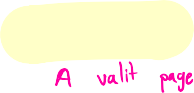 A valit page